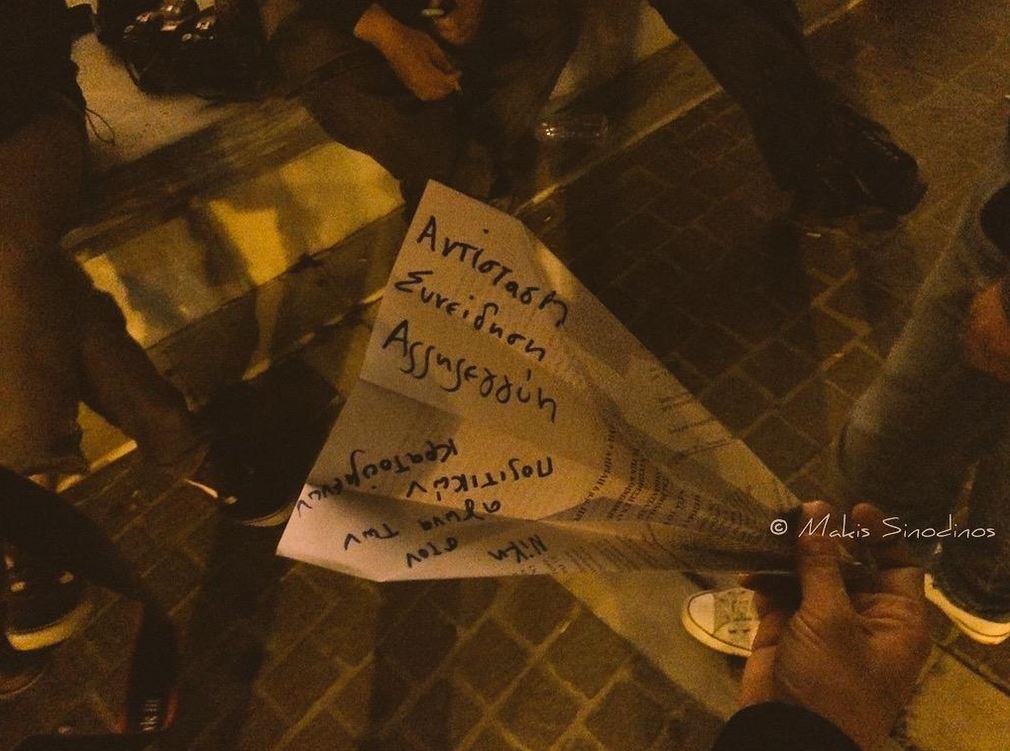 Αντίσταση
Συνείδηση
Αλληλεγγύη
Νίκη
στον
αγώνα των
Πολιτικών
Κρατουμένων
© Makis Sinodinos